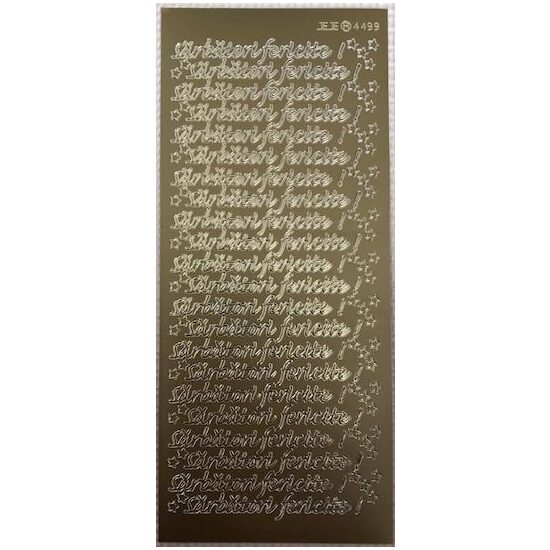 JEJE ® 4499
Sărbători fericite !
Sărbători fericite !
Sărbători fericite !
Sărbători fericite !
Sărbători fericite !
Sărbători fericite !
Sărbători fericite !
Sărbători fericite !
Sărbători fericite !
Sărbători fericite !
Sărbători fericite !
Sărbători fericite !
Sărbători fericite !
Sărbători fericite !
Sărbători fericite !
Sărbători fericite !
Sărbători fericite !
Sărbători fericite !
Sărbători fericite !
Sărbători fericite !
Sărbători fericite !
Sărbători fericite !